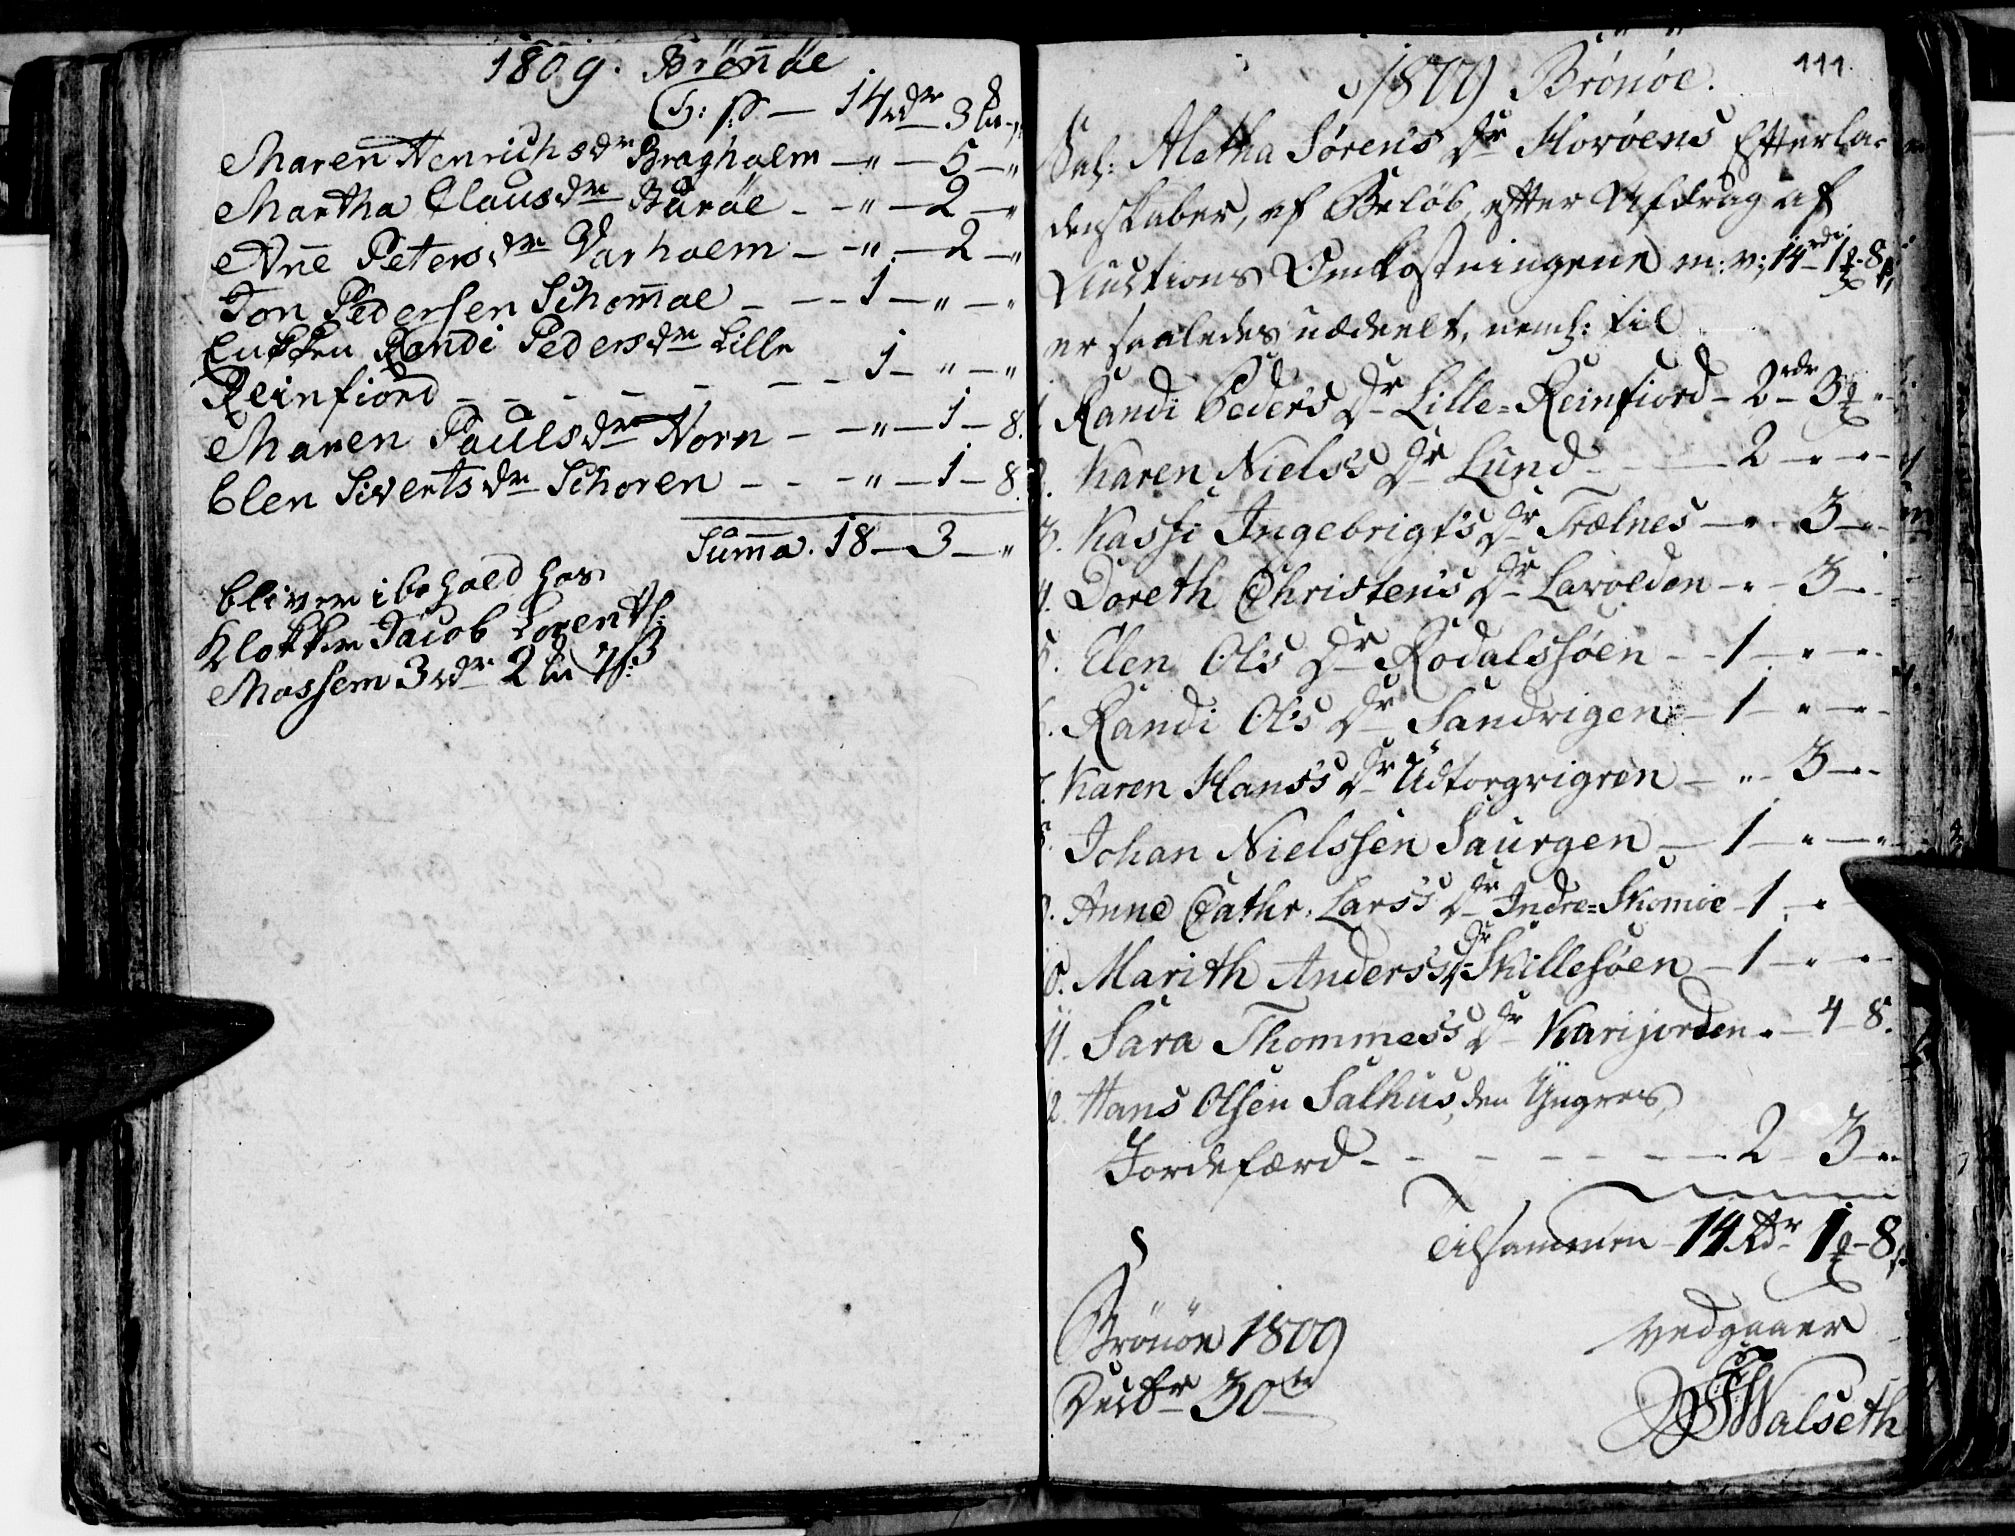 1809. Brönöe
14 dr 3
Maren Henrichsdr Bragholm — „ — 5 — „
Martha Clausdr Buröe — „ — 2 — „
Ane Petersdr Varholm — „ — 2 — „
Jon Pedersen Schomoe — 1 — „ — „
Enkken Randi Pedersdr Lille
Reinfiord — 1 — „ — „
Maren Paulsdr Horn — „ — 1 — 8.
Elen Sivertsdr Schoren — „ — 1 — 8.
Suma. 18 — 3 — „
bliver i behold hos
Klokker Jacob Lorents:
Mossem 3 dr 2
111
1809 Brönöe.
Sal: Aletha Sørens Dr Horøens Efterla-
denskaber, af Beløb, efter Afdrag af
Auctions Omkostningene m: v: 14 rdr 1 8
er saaledes uddeelt, neml: til
1. Randi Peders Dr Lille=Reinfiord — 2 rdr 3 „
2. Karen Niels's Dr Lund — 2 — „ — „
3. Kassi Ingebrigt's Dr Trælnes — „ — 3 — „
4. Doreth Christens Dr Lavolden — „ — 3 — „
5. Elen Ols Dr Rodalssøen — 1 — „ — „
6. Randi Ols Dr Sandvigen — 1 — „ — „
7. Karen Hans's Dr Udtorgvigen — „ — 3 — „
8. Johan Nielssen Saurgen — 1 — „ — „
9. Anne Cathr. Lars's Dr Indre=Skomoe — 1 — „
10. Marith Anders's Dr Skillesøen — 1 — „ — „
11. Sara Thommes's Dr Karijorden „ — 4 — 8.
12. Hans Olsen Salhus, den Yngres,
Jordefærd — 2 — 3 — „
Tilsammen — 14 Rdr 1 — 8
Brönöe 1809
Decbr 30te
vedgaaer
Walseth